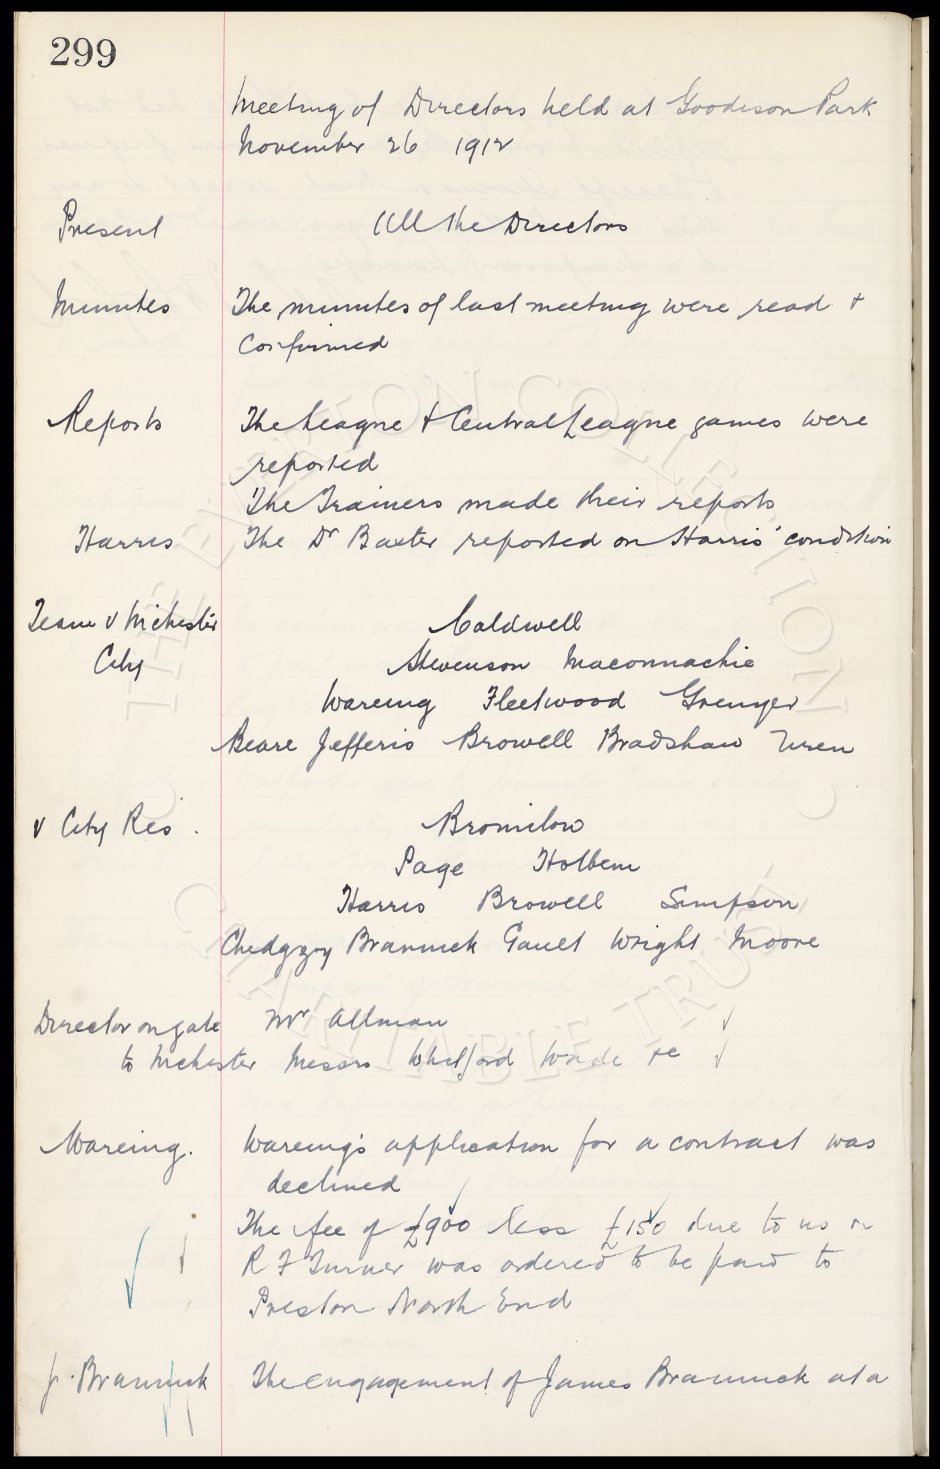 299
Meeting of Directors held at Goodison Park
November 26 1912
Present All the Directors
Minutes The minutes of last meeting were read +
confirmed
Reports The League + Central League games were
reported
The Trainers made their reports
Harris The Dr Baxter reported on Harris' condition
Team v Mchester Caldwell
City Stevenson Maconnachie
Wareing Fleetwood Grenyer
Beare Jefferis Browell Bradshaw Uren
v City Res. Bromilow
Page Holbem
Harris Browell Simpson
Chedgzoy Brannick Gault Wright Moore
Director on gate Mr Allman
to Mchester Messrs Whitford Wade
Wareing. Wareing's application for a contract was
declined
The fee of £900 less £150 due to us
R F Turner was ordered to be paid to
Preston North End
J. Brannick The engagement of James Brannick at a
THE EVERTON COLLECTION
CHARITABLE TRUST